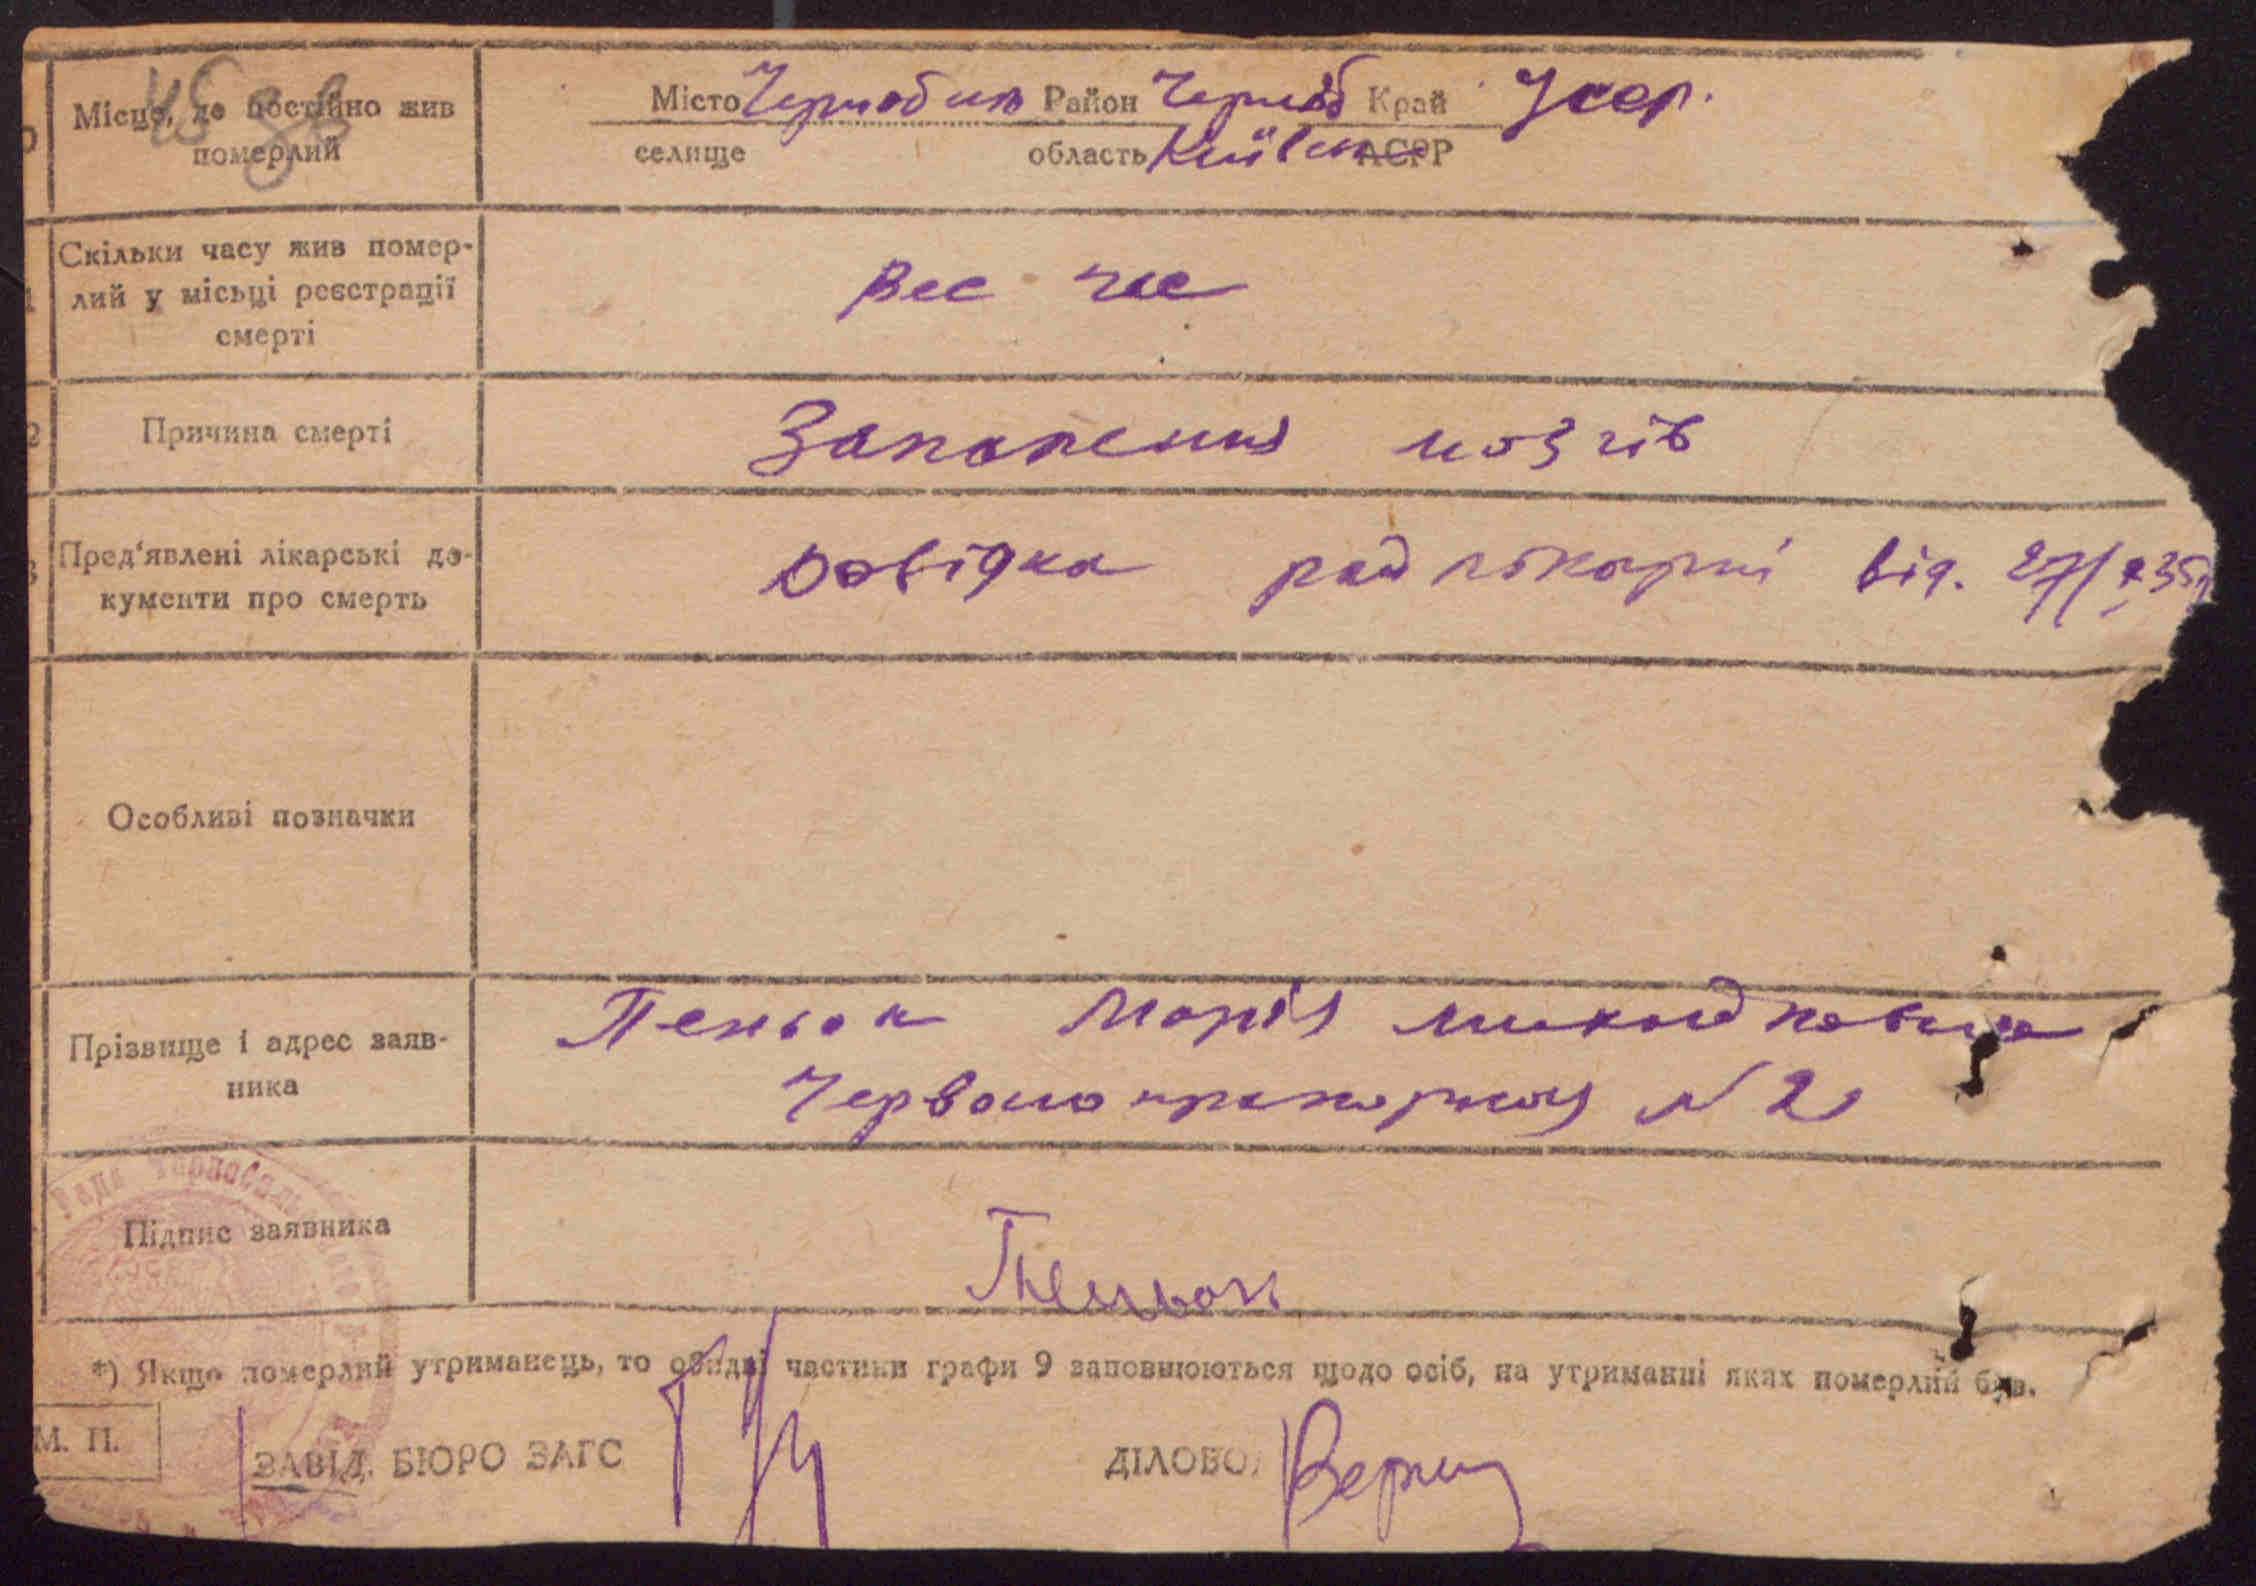 Місце, де постійно жив померлий
Місто Чорнобиль Район Чорноб Край Усср.
селище область Київськ АСРР
Скільки часу жив помер-
лий у місьці реєстрації
смерті
Вес час
Причина смерті
Запалення мозгів
Пред'явлені лікарські до-
кументи про смерть
Довідка рай лікарні від. 27/
Особливі позначки
Прізвище і адрес заяв-
ника
Пеньок Марія
Червонопрапорная N 2
Підпис заявника
Пеньок
*) Якщо померлий утриманець, то обидві частини графи 9 заповнюються щодо осіб, на утриманні яких померлий був.
М. П.
ЗАВІД. БЮРО ЗАГС
ДІЛОВОД